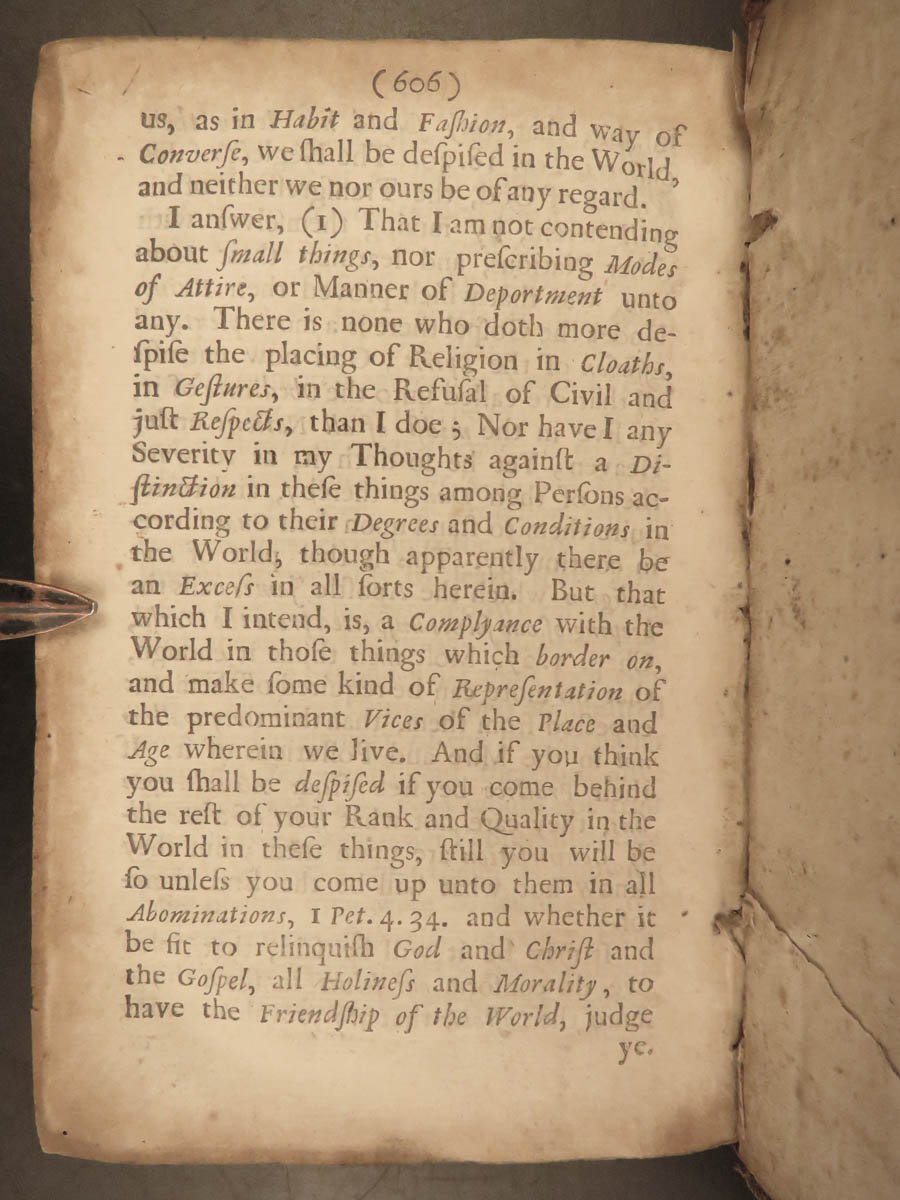 (606)
us, as in Habit and Faſhion, and way of
Converſe, we ſhall be deſpiſed in the World,
and neither we nor ours be of any regard.
I anſwer, (1) That I am not contending
about ſmall things, nor preſcribing Modes
of Attire, or Manner of Deportment unto
any. There is none who doth more de-
ſpiſe the placing of Religion in Cloaths,
in Geſtures, in the Refuſal of Civil and
juſt Reſpects, than I doe; Nor have I any
Severity in my Thoughts againſt a Di-
ſtinction in theſe things among Perſons ac-
cording to their Degrees and Conditions in
the World; though apparently there be
an Exceſs in all ſorts herein. But that
which I intend, is, a Complyance with the
World in thoſe things which border on,
and make ſome kind of Repreſentation of
the predominant Vices of the Place and
Age wherein we live. And if you think
you ſhall be deſpiſed if you come behind
the reſt of your Rank and Quality in the
World in theſe things, ſtill you will be
ſo unleſs you come up unto them in all
Abominations, 1 Pet. 4. 34. and whether it
be fit to relinquiſh God and Chriſt and
the Goſpel, all Holineſs and Morality, to
have the Friendſhip of the World, judge
ye.